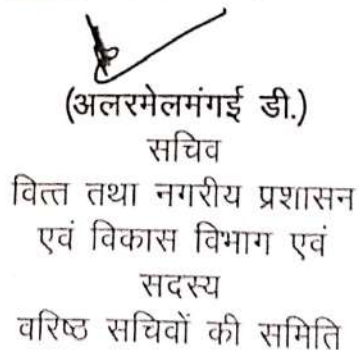 (अलरमेलमंगई डी.)
सचिव
वित्त तथा नगरीय प्रशासन
एवं विकास विभाग एवं
सदस्य
वरिष्ठ सचिवों की समिति